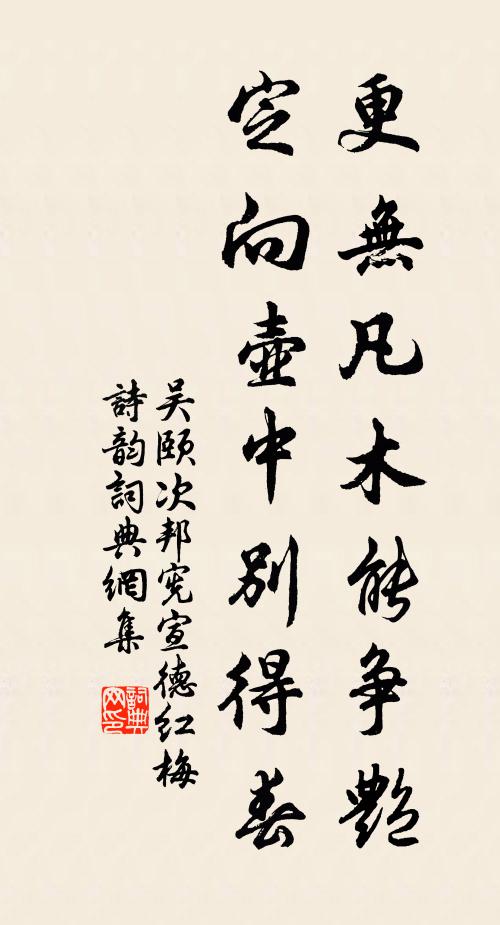 更無凡木能争艷
定向壺中別得春
吴頤次邦宪宣德红梅
詩韵詞典網集
詞典网印